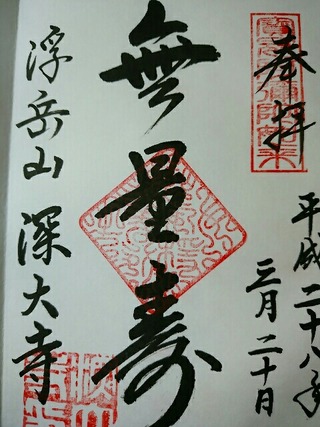 奉拝
平成二十八年
三月二十日
無量寿
浮岳山 深大寺